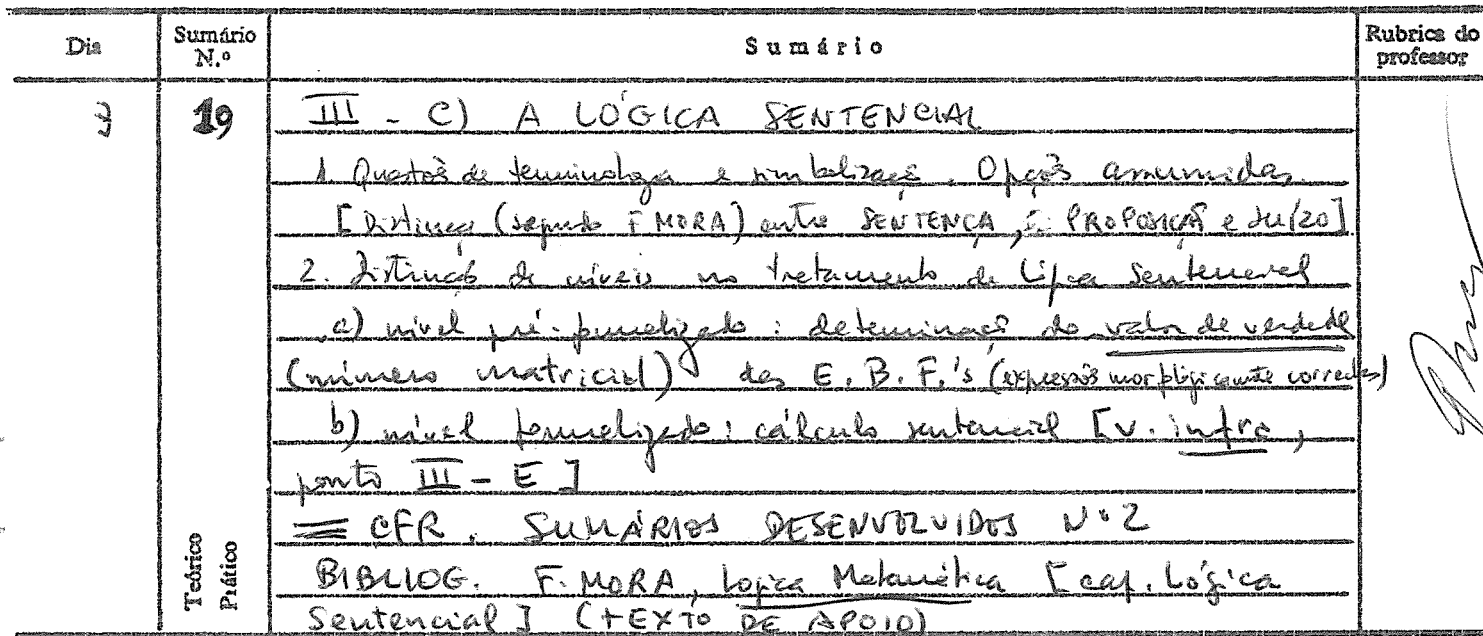 Dia
Sumário N.º
Sumário
Rubrica do professor
7
19
III - C) A LÓGICA SENTENCIAL
1. Questões de terminologia e simbolização. Opções assumidas.
[Distinção (segundo F MORA) entre SENTENÇA, PROPOSIÇÃO e JUÍZO]
2. Distinção de níveis no tratamento da Lógica Sentencial
a) nível pré-formalizado: determinação do valor de verdade
(número matricial) das E.B.F.'s (expressões morfologicamente correctas)
b) nível formalizado: cálculo sentencial [v. infra,
ponto III - E]
= CFR. SUMÁRIOS DESENVOLVIDOS Nº 2
BIBLIOG. F. MORA, Logica Matemática [cap. Lógica
Sentencial] (TEXTO DE APOIO)
Teórico
Prático